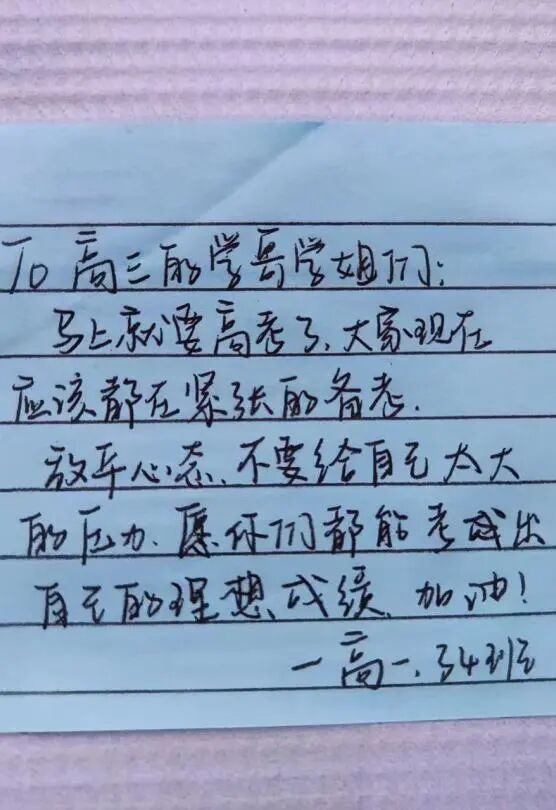 To 高三的学哥学姐们:
马上就要高考了,大家现在
应该都在紧张的备考.
放平心态,不要给自己太大
的压力、愿你们都能考成出
自己的理想成绩、加油!
一高一.34班